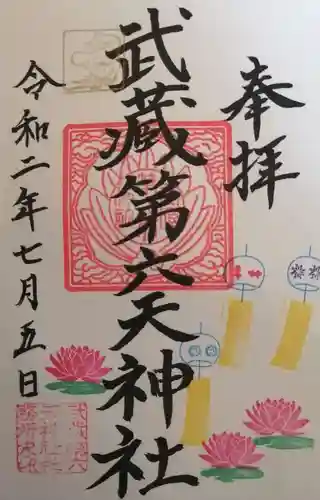 奉拝
武蔵第六天神社
令和二年七月五日